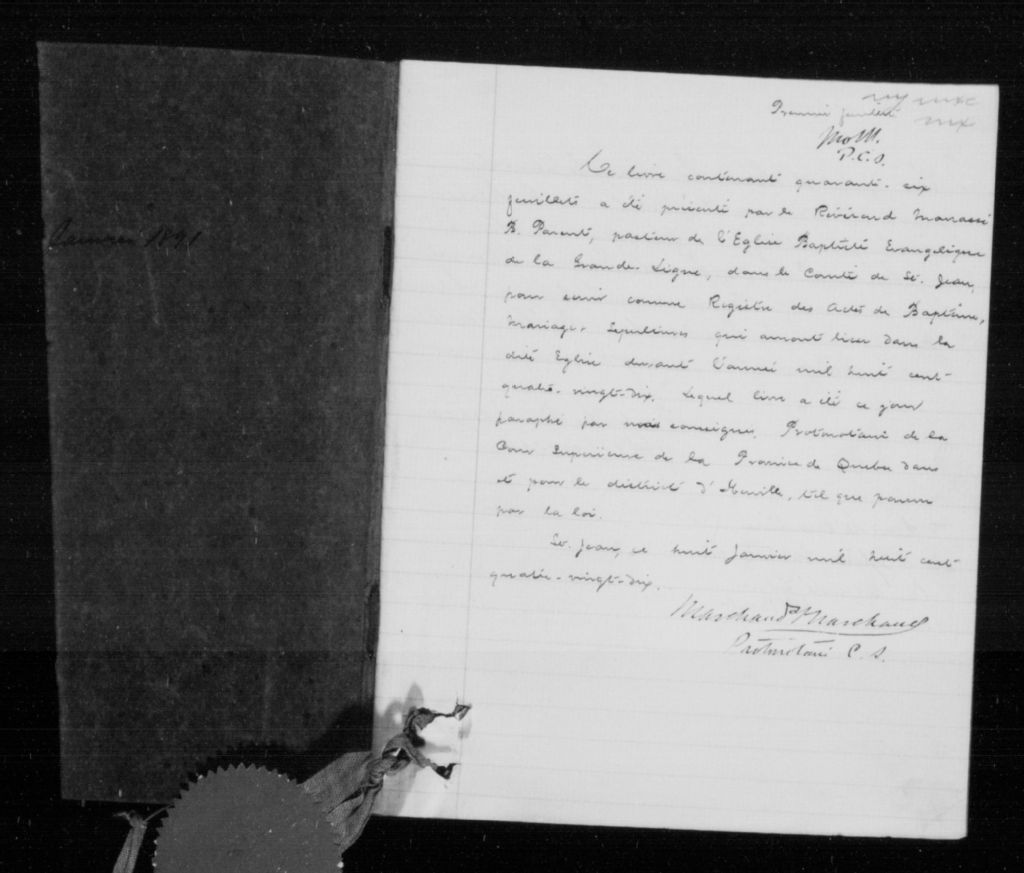 Janvier 1891
Premier feuillet
M&M.
P.C.S.
Ce livre contenant quarante-six
feuillets a été présenté par le Révérend Manassé
B. Parent, pasteur de l'Eglise Baptiste Evangelique
de la Grande-Ligne, dans le Comté de St. Jean,
pour servir comme Registre des Actes de Baptême,
Mariage, Sepultures qui auront lieu dans la
dite Eglise durant l'année mil huit cent
quatre-vingt-dix. Lequel livre a été ce jour
paraphé par nous soussigné, Protonotaire de la
Cour Superieure de la Province de Quebec dans
et pour le district d'Iberville, tel que pourvu
par la loi.
St. Jean, ce huit Janvier mil huit cent
quatre-vingt-dix.
Marchand & Marchand
Protonotaire C. S.